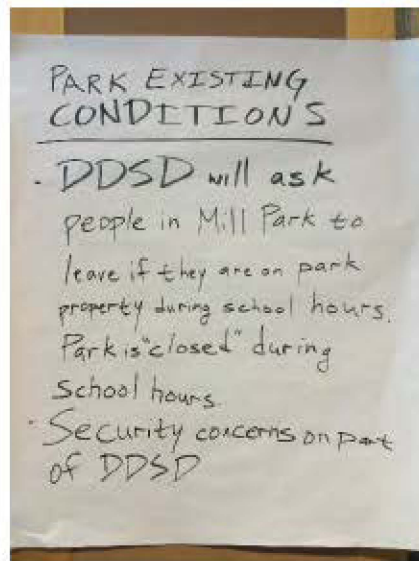 PARK EXISTING
CONDITIONS
· DDSD will ask
people in Mill Park to
leave if they are on park
property during school hours.
Park is "closed" during
school hours.
· Security concerns on part
of DDSD